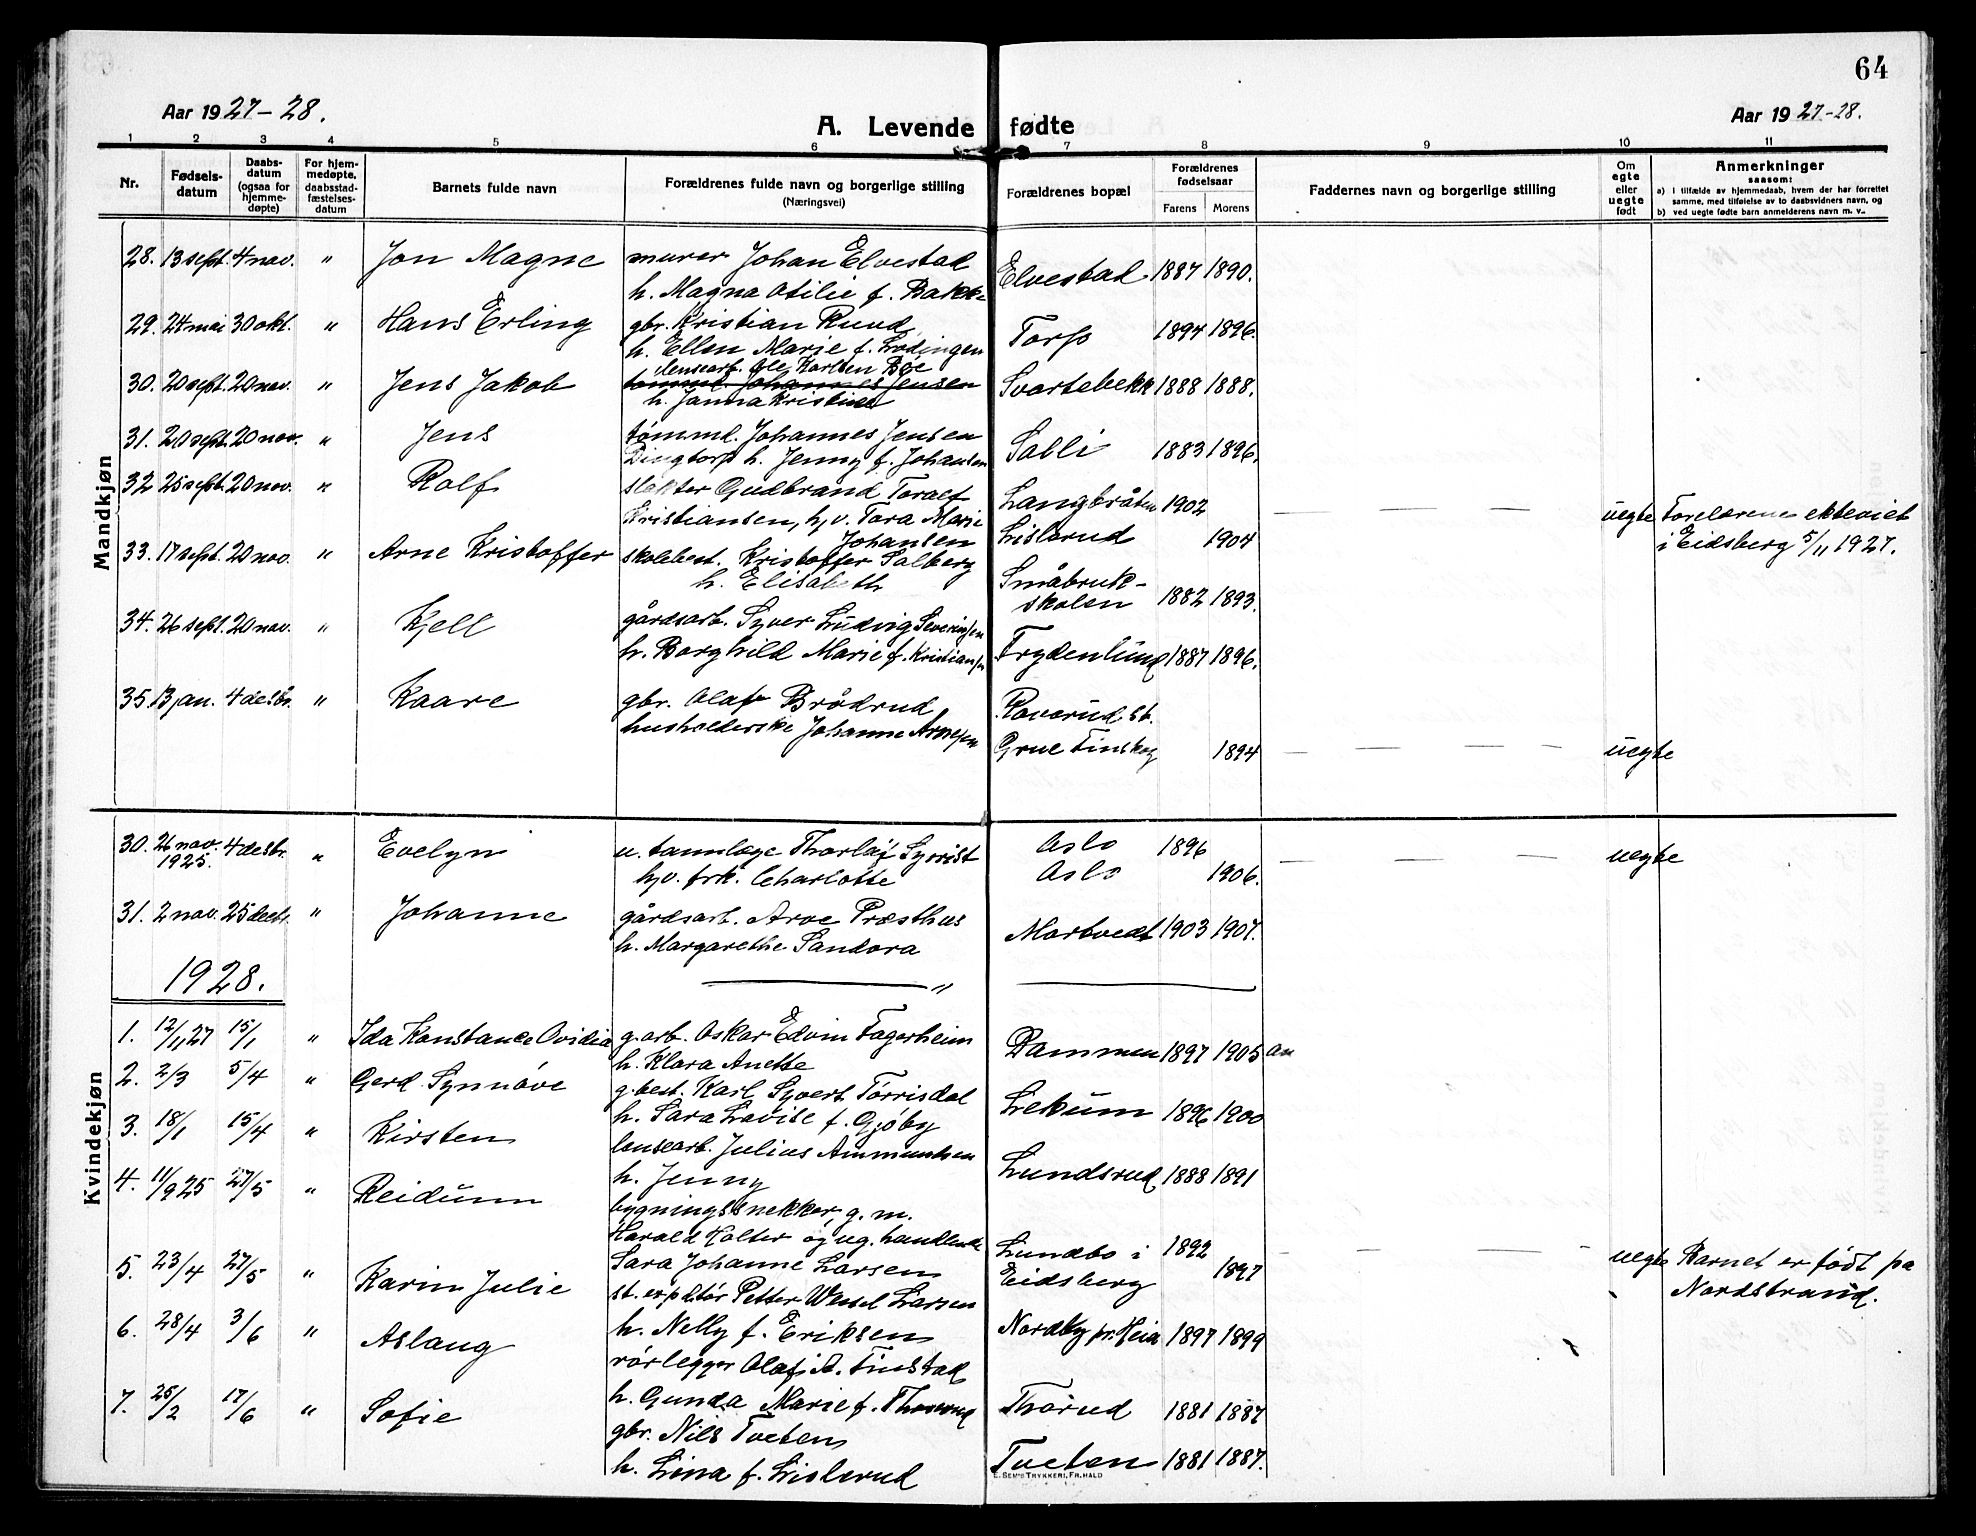 64
Aar 1927-28.
A. Levende fødte
Aar 1927-28.
1 2 3 4 5 6 7 8 9 10 11
Nr.
Fødsels-
datum
Daabs-
datum
(ogsaa for
hjemme-
døpte)
For hjem-
medøpte,
daabsstad-
fæstelses-
datum
Barnets fulde navn
Forældrenes fulde navn og borgerlige stilling
(Næringsvei)
Forældrenes bopæl
Forældrenes
fødselsaar
Farens Morens
Faddernes navn og borgerlige stilling
Om
egte
eller
uegte
født
Anmerkninger
saasom:
a) i tilfælde av hjemmedaab, hvem der har forrettet
samme, med tilføielse av to daabsvidners navn, og
b) ved uegte fødte barn anmelderens navn m. v..
Mandkjøn
28. 13 sept. 4 nov. " Jon Magne murer Johan Elvestad Elvestad 1887 1890.
h. Magna Otilie f. Bakke
29. 24 mai 30 okt. " Hans Erling gbr. Kristian Ruud Torp 1894 1896.
h. Ellen Marie f. Lødingen
lensearb. Ole Karlsen Bøe
30. 20 sept. 20 nov. " Jens Jakob tømmd. Johannes Jensen Svartebekk 1888 1888.
h. Janna Kristine
31. 20 sept. 20 nov. " Jens tømmd. Johannes Jensen Salli 1883 1896.
Dingtorp h. Jenny f. Johansen
32 25 sept. 20 nov. " Rolf slakter Gudbrand Toralf Langbråten 1902
Kristiansen, hv. Tora Marie uegte Forelærene ekteviet
Johansen Lislerud 1904 i Eidsberg 5/11 1927.
33. 17 sept. 20 nov. " Arne Kristoffer skolebest. Kristoffer Salberg
h. Elisabeth Småbruk-
skolen 1882 1893.
34. 26 sept. 20 nov. " Kjell gårdsarb. Syver Ludvig Severinsen
h. Borghild Marie f. Kristiansen Frydenlund 1887 1896.
35. 13 jan. 4 desbr. " Kaare gbr. Olaf Brødrud Roverud st.
husholderske Johanne Arnesen Grue Finskog 1894 uegte
Kvindekjøn
30. 26 nov. 4 desbr. " Evelyn u. tannlæge Thorlåf Syvrist Oslo 1896 uegte
1925.
hv. frk. Charlotte Oslo 1906.
31. 2 nov. 25 decbr. " Johanne gårdsarb. Arve Præsthus Mortvedt 1903 1907.
h. Margarethe Sandora
1928. "
1. 12/11 27 15/1 " Ida Konstance Ovidia g.arb. Oskar Edvin Fagerheim Dammen 1897 1905 an
h. Klara Anette
2. 2/3 5/4 " Gerd Synnøve g.best. Karl Syvert Torrisdal
h. Sara Lovise f. Gjøby Lekum 1896 1900
3. 18/1 15/4 " Kirsten lensearb. Julius Ammundsen
h. Jenny Lundsrud 1888 1891
4. 11/9 25 27/5 " Reidunn bygningssnekker, g. m.
Harald Holter og ug. handlende Lundbo i 1892
Sara Johanne Larsen Eidsberg 1897 uegte Barnet er født på
Nordstrand.
5. 23/4 27/5 " Karin Julie st. exp.ktør Petter Wessel Larsen
h. Nelly f. Eriksen Nordby pr. Heia 1897 1899
6. 28/4 3/6 " Aslaug rørlegger Olaf A. Finstad
h. Gunda Marie f. Thorerud Thørud 1881 1887
7. 25/2 17/6 " Sofie gbr. Nils Tveten
h. Lina f. Lislerud Tveten 1881 1887.
E. SEM'S TRYKKERI, FR.HALD